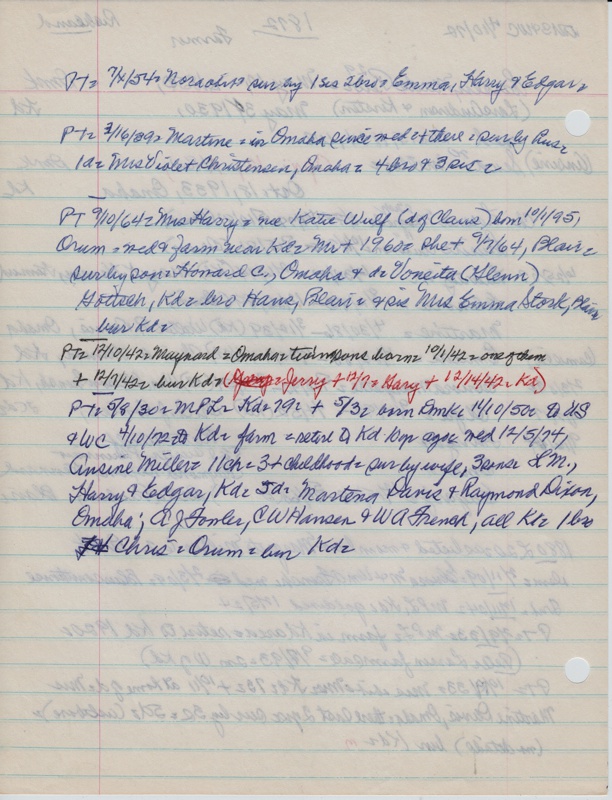 PT= 7/X/54= Norache+= sur by 1 sis 2 bro= Emma, Harry & Edgar=
PT= 3/16/89= Martine= in Omaha since wed + there= sur by Rus=
1d= Mrs Violet Christensen, Omaha= 4 bro & 3 sis=
PT 9/10/64= Mrs Harry= nee Katie Wulf (d of Claus) born 10/1/95,
Orum= wed & farm near Kd= Mr + 1960= she + 9/7/64, Blair=
sur by son= Howard C., Omaha & d= Voneita (Glenn)
Gottsch, Kd= bro Hans, Blair= & sis Mrs Emma Stork, Blair
bur Kd=
PT= 12/10/42= Maynard= Omaha= twin sons born= 10/1/42= one of them
+ 12/7/42= bur Kd= ( Jerry + 12/7= Gary + 12/14/42= Kd)
PT= 5/8/30= MPL= Kd= 79= + 5/3= born Dmk= 11/10/50= to US
& WC 4/10/72= to Kd= farm= retire to Kd 10 yr ago= wed 12/5/74,
Ansine Miller= 11 ch= 3 + childhood= sur by wife, 3 sons= L M.,
Harry & Edgar, Kd= 5 d= Martena Davis & Raymond Dixon,
Omaha; A J Fowler, C W Hansen & W A French, all Kd= 1 bro
Chris= Orum= bur Kd=